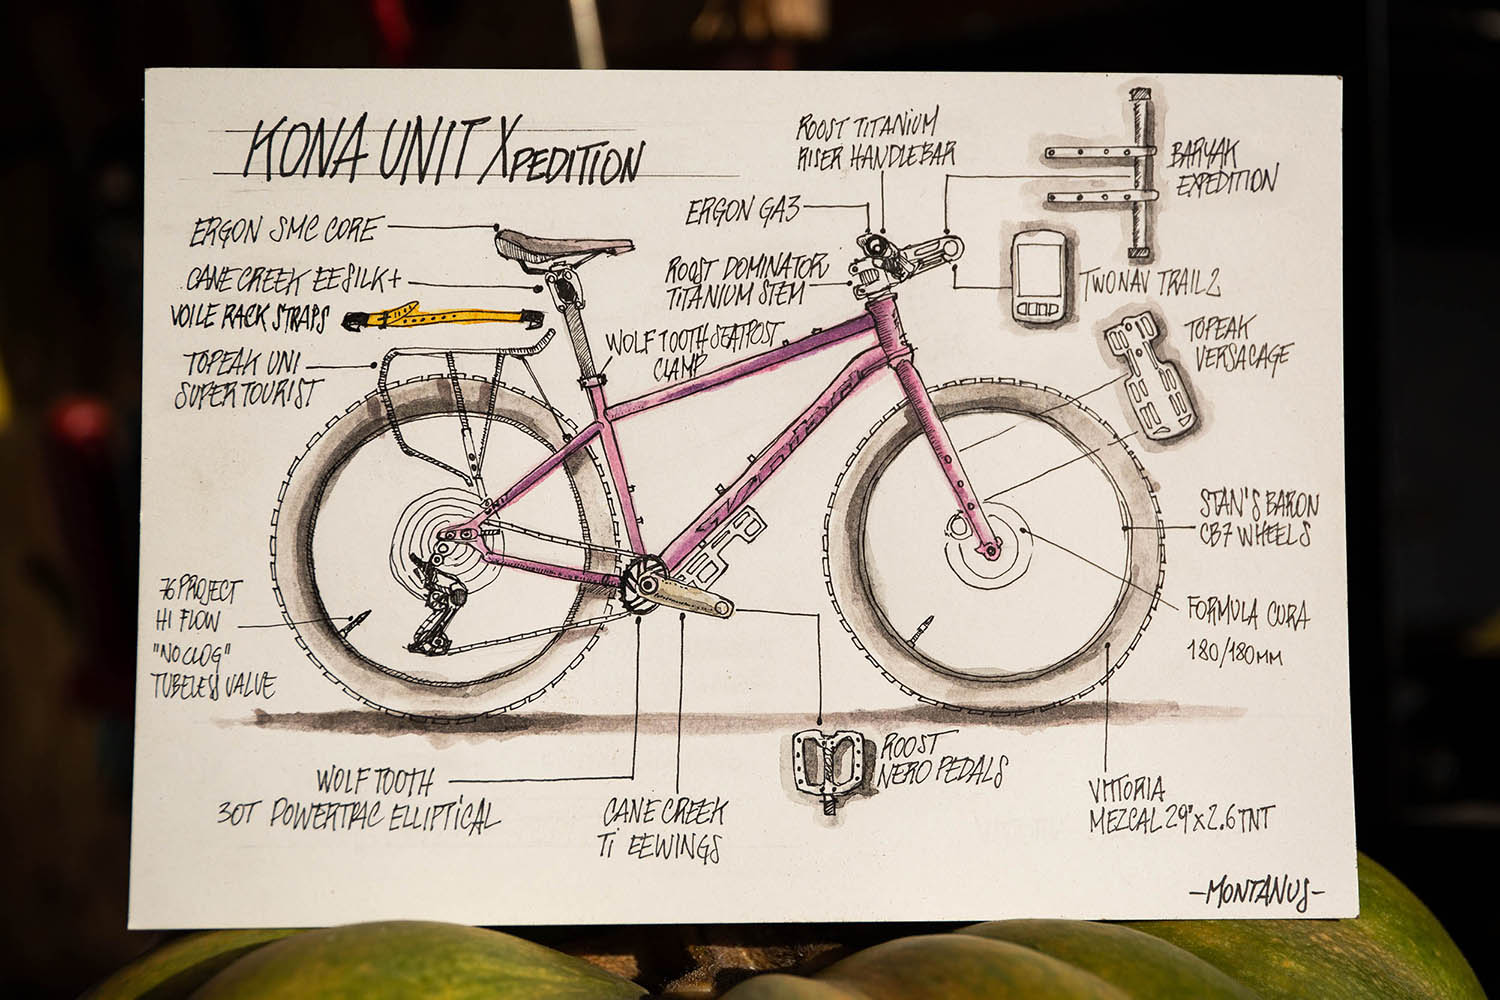 KONA UNIT XPEDITION
ERGON SMC CORE
CANE CREEK EESILK+
VOILE RACK STRAPS
TOPEAK UNI
SUPER TOURIST
WOLF TOOTH SEATPOST
CLAMP
ERGON GA3
ROOST TITANIUM
RISER HANDLEBAR
ROOST DOMINATOR
TITANIUM STEM
BARYAK
EXPEDITION
TWONAV TRAIL 2
TOPEAK
VERSACAGE
STAN'S BARON
CB7 WHEELS
FORMULA CURA
180/180MM
76 PROJECT
HI FLOW
"NO CLOG"
TUBELESS VALVE
WOLF TOOTH
30T POWERTRAC ELLIPTICAL
CANE CREEK
Ti EEWINGS
ROOST
NERO PEDALS
VITTORIA
MEZCAL 29"x2.6 TNT
-MONTANUS-